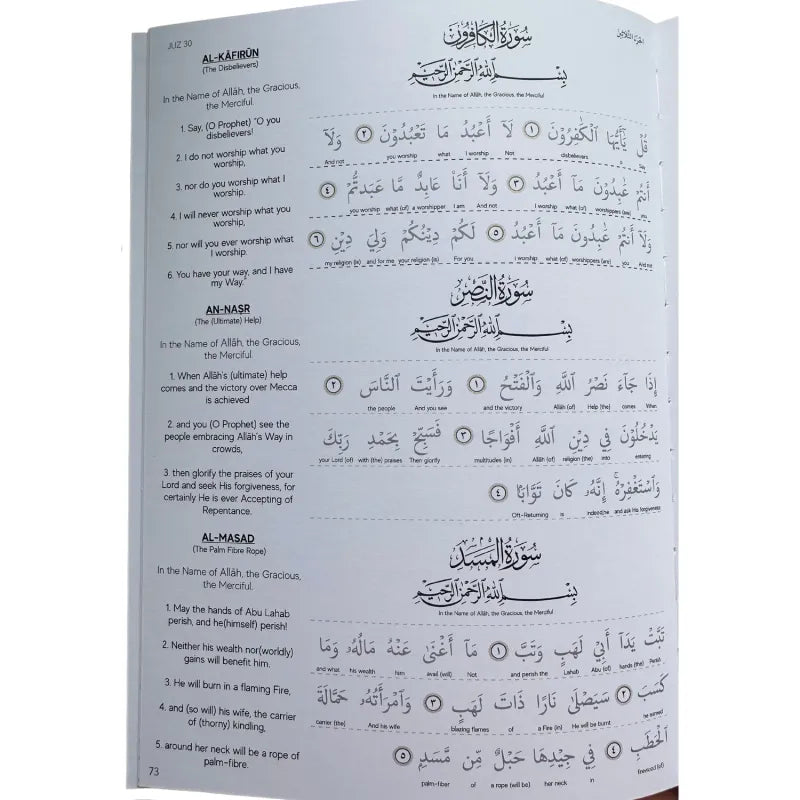 JUZ 30
AL-KĀFIRŪN
(The Disbelievers)
In the Name of Allāh, the Gracious,
the Merciful.
1. Say, (O Prophet) "O you
disbelievers!
2. I do not worship what you
worship,
3. nor do you worship what I
worship.
4. I will never worship what you
worship,
5. nor will you ever worship what
I worship.
6. You have your way, and I have
my Way."
AN-NAṢR
(The (Ultimate) Help)
In the Name of Allāh, the Gracious,
the Merciful.
1. When Allāh's (ultimate) help
comes and the victory over Mecca
is achieved
2. and you (O Prophet) see the
people embracing Allāh's Way in
crowds,
3. then glorify the praises of your
Lord and seek His forgiveness, for
certainly He is ever Accepting of
Repentance.
AL-MASAD
(The Palm Fibre Rope)
In the Name of Allāh, the Gracious,
the Merciful.
1. May the hands of Abu Lahab
perish, and he(himself) perish!
2. Neither his wealth nor(worldly)
gains will benefit him.
3. He will burn in a flaming Fire,
4. and (so will) his wife, the carrier
of (thorny) kindling,
5. around her neck will be a rope of
palm-fibre.
73
الجزء الثلاثين
سُورَةُ الكَافِرُونَ
بِسْمِ اللَّهِ الرَّحْمَٰنِ الرَّحِيمِ
In the Name of Allāh, the Gracious, the Merciful
قُلْ يَٰٓأَيُّهَا ٱلْكَٰفِرُونَ ١ لَآ أَعْبُدُ مَا تَعْبُدُونَ ٢ وَلَآ
And not you worship what I worship Not disbelievers O Say
أَنتُمْ عَٰبِدُونَ مَآ أَعْبُدُ ٣ وَلَآ أَنَا۠ عَابِدٌ مَّا عَبَدتُّمْ ٤
you worship what (of) a worshipper I am And not I worship what (of) worshippers (are) you
وَلَآ أَنتُمْ عَٰبِدُونَ مَآ أَعْبُدُ ٥ لَكُمْ دِينُكُمْ وَلِيَ دِينِ ٦
my religion (is) and for me your religion (is) For you I worship what (of) worshippers (are) you And not
سُورَةُ النَّصْرِ
بِسْمِ اللَّهِ الرَّحْمَٰنِ الرَّحِيمِ
In the Name of Allāh, the Gracious, the Merciful
إِذَا جَآءَ نَصْرُ ٱللَّهِ وَٱلْفَتْحُ ١ وَرَأَيْتَ ٱلنَّاسَ ٢
the people And you see and the victory Allāh (of) Help (the) comes When
يَدْخُلُونَ فِي دِينِ ٱللَّهِ أَفْوَاجًا ٣ فَسَبِّحْ بِحَمْدِ رَبِّكَ
your Lord (of) with (the) praises Then glorify multitudes (in) Allāh (of) religion (the) into entering
وَٱسْتَغْفِرْهُ ۚ إِنَّهُۥ كَانَ تَوَّابًۢا ٤
Oft-Returning is Indeed,he and ask His forgiveness
سُورَةُ المَسَدِ
بِسْمِ اللَّهِ الرَّحْمَٰنِ الرَّحِيمِ
In the Name of Allāh, the Gracious, the Merciful
تَبَّتْ يَدَآ أَبِي لَهَبٍ وَتَبَّ ١ مَآ أَغْنَىٰ عَنْهُ مَالُهُۥ وَمَا
and what his wealth him avail (will) Not and perish the Lahab Abu (of) hands (the) Perish
كَسَبَ ٢ سَيَصْلَىٰ نَارًا ذَاتَ لَهَبٍ ٣ وَٱمْرَأَتُهُۥ حَمَّالَةَ
carrier (the) And his wife blazing flames of a Fire (in) He will be burnt he earned
ٱلْحَطَبِ ٤ فِي جِيدِهَا حَبْلٌ مِّن مَّسَدٍۭ ٥
palm-fiber of a rope (will be) her neck in firewood (of)